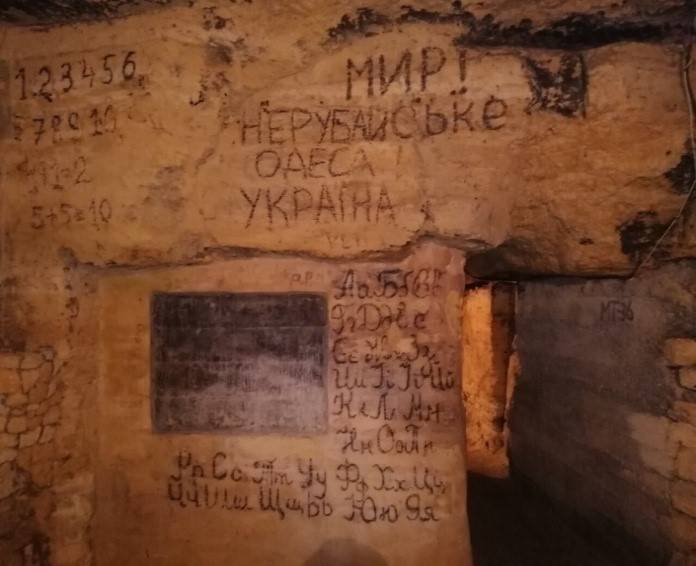 1.2.3 4 5 6
7 8 9 10
1+1=2
5+5=10
МИР!
НЕРУБАЙСЬКЕ
ОДЕСА
УКРАЇНА
Аа Бб Вв
Гг Дд Ее
Єє Жж Зз
Ии Іі Її Йй
Кк Лл Мм
Нн Оо Пп
Рр Сс Тт Уу Фф Хх Цц
Чч Шш Щщ Ьь Юю Яя